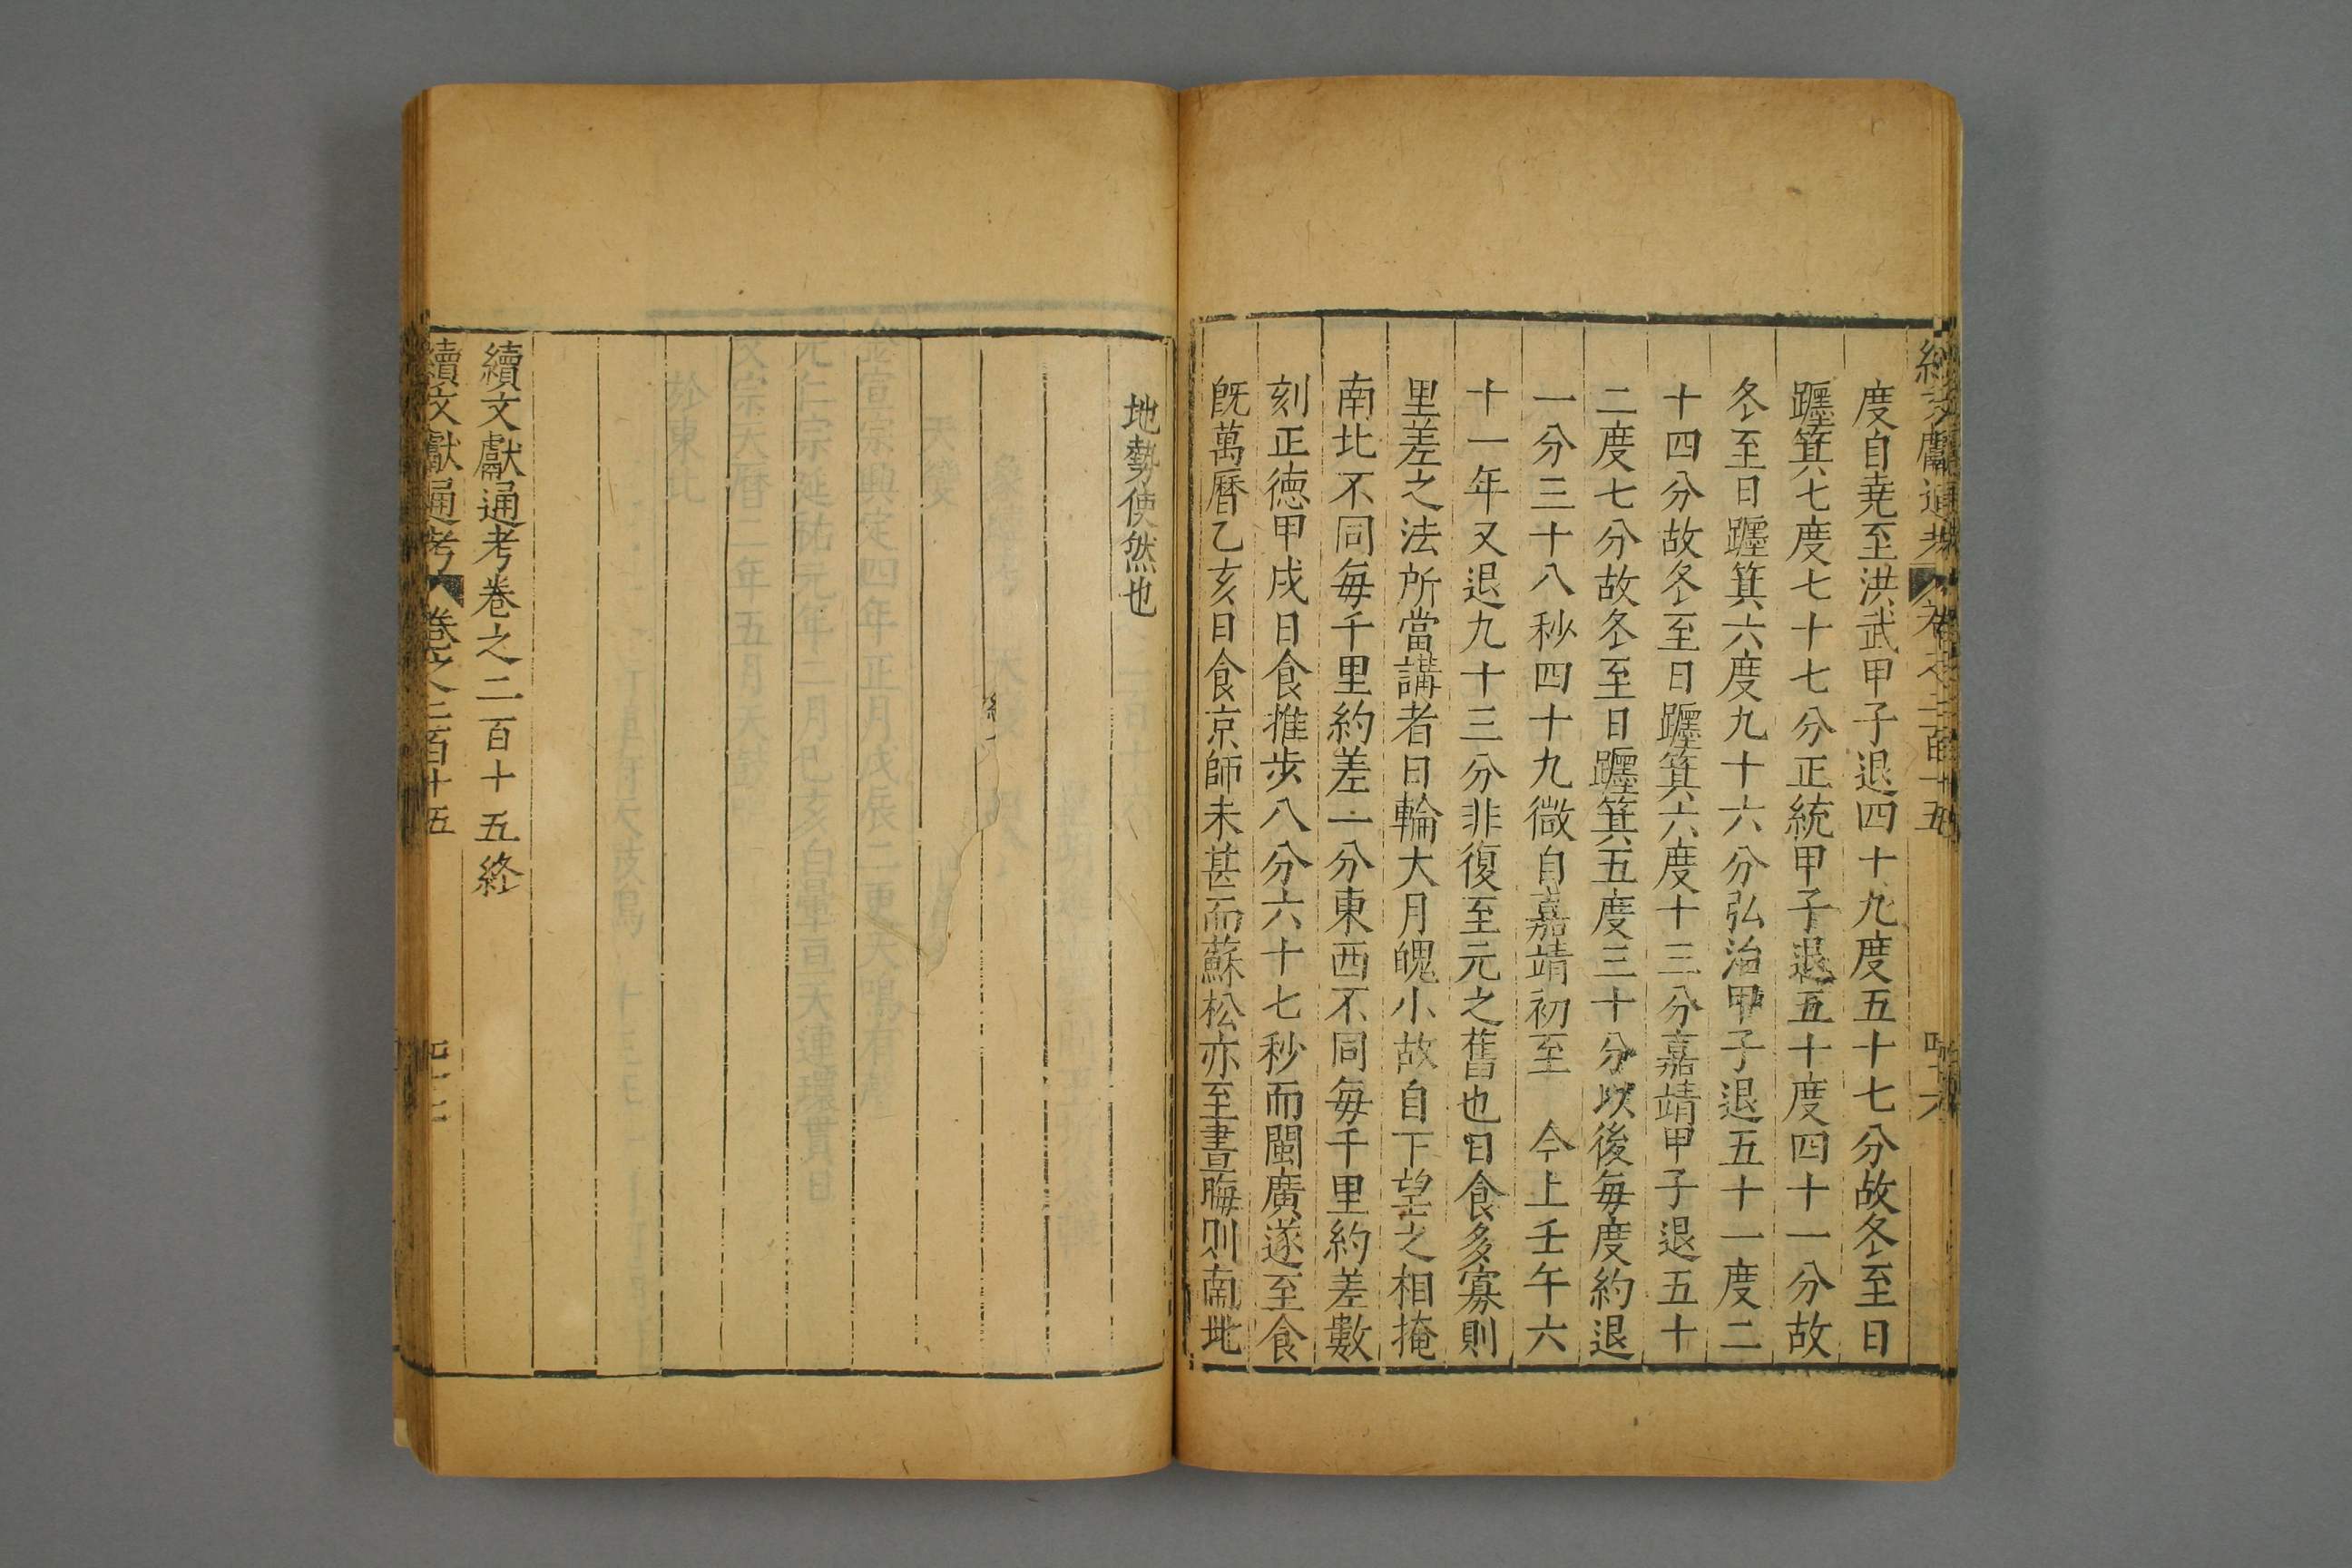 續文獻通考 卷之二百十五 四十六
度自堯至洪武甲子退四十九度五十七分故冬至日
躔箕七度七十七分正統甲子退五十度四十一分故
冬至日躔箕六度九十六分弘治甲子退五十一度二
十四分故冬至日躔箕六度十三分嘉靖甲子退五十
二度七分故冬至日躔箕五度三十分以後每度約退
一分三十八秒四十九微自嘉靖初至 今上壬午六
十一年又退九十三分非復至元之舊也日食多寡則
里差之法所當講者日輪大月魄小故自下望之相掩
南北不同每千里約差一分東西不同每千里約差數
刻正德甲戌日食推步八分六十七秒而閩廣遂至食
旣萬曆乙亥日食京師未甚而蘇松亦至晝晦则南地
地勢使然也
續文獻通考卷之二百十五終
續文獻通考 卷之二百十五